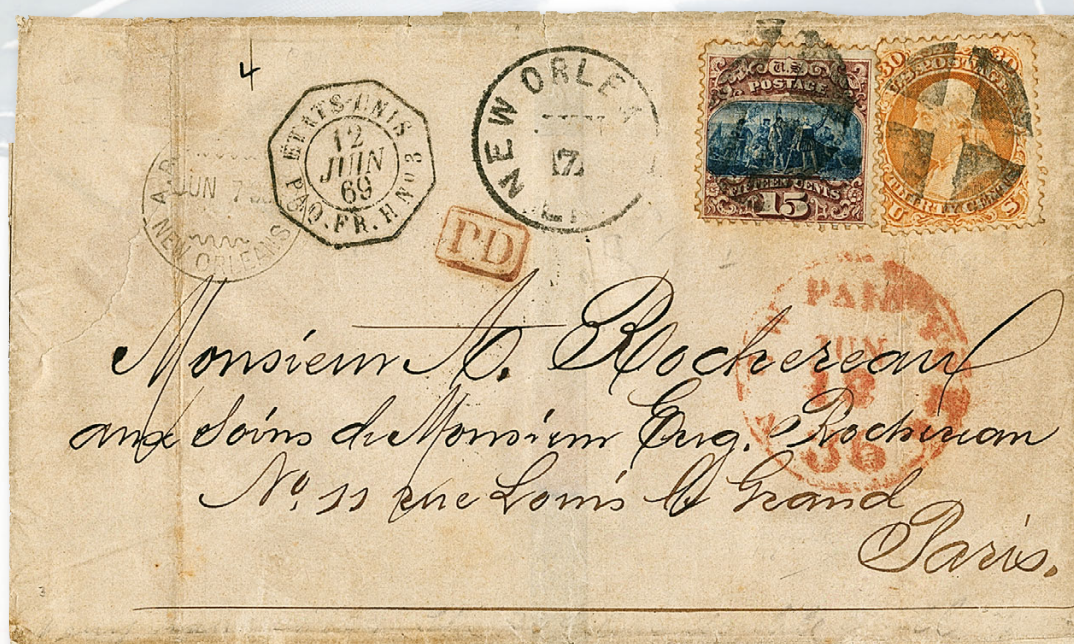 4
ETATS-UNIS
12
JUIN
69
PAQ. FR. H No 3
JUN 7
NEW ORLEANS
NEW ORLEA
LA
PD
U.S.
POSTAGE
FIFTEEN CENTS
15
30
30
U.S. POSTAGE
U S
PAID
JUN
12
36
Monsieur A. Rochereau
aux Soins de Monsieur Eug. Rochereau
No. 11 rue Louis le Grand
Paris.
3